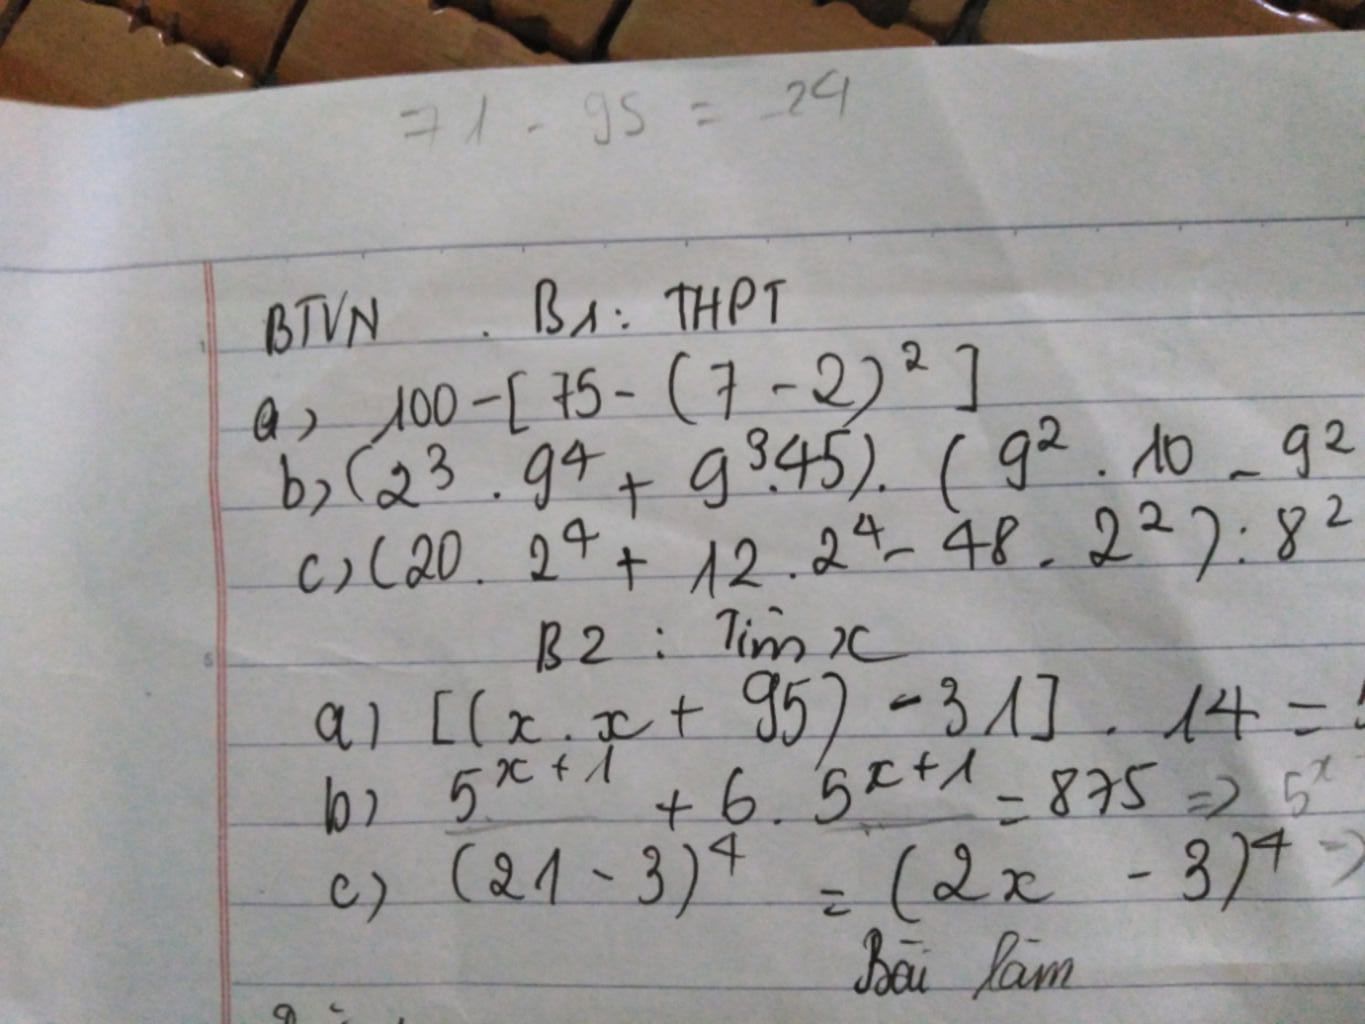 71 - 95 = -24
BTVN . B1: THPT
a) 100 - [75 - (7 - 2)² ]
b) (2³ . 9⁴ + 9³.45). ( 9² . 10 - 9²
c) (20 . 2⁴ + 12 . 2⁴ - 48 . 2² ) : 8²
B2 : Tìm x
a) [(x . x + 95) - 31] . 14 =
b) 5ˣ⁺¹ + 6 . 5ˣ⁺¹ = 875 => 5ˣ
c) (21 - 3)⁴ = (2x - 3)⁴ =>
Bài làm